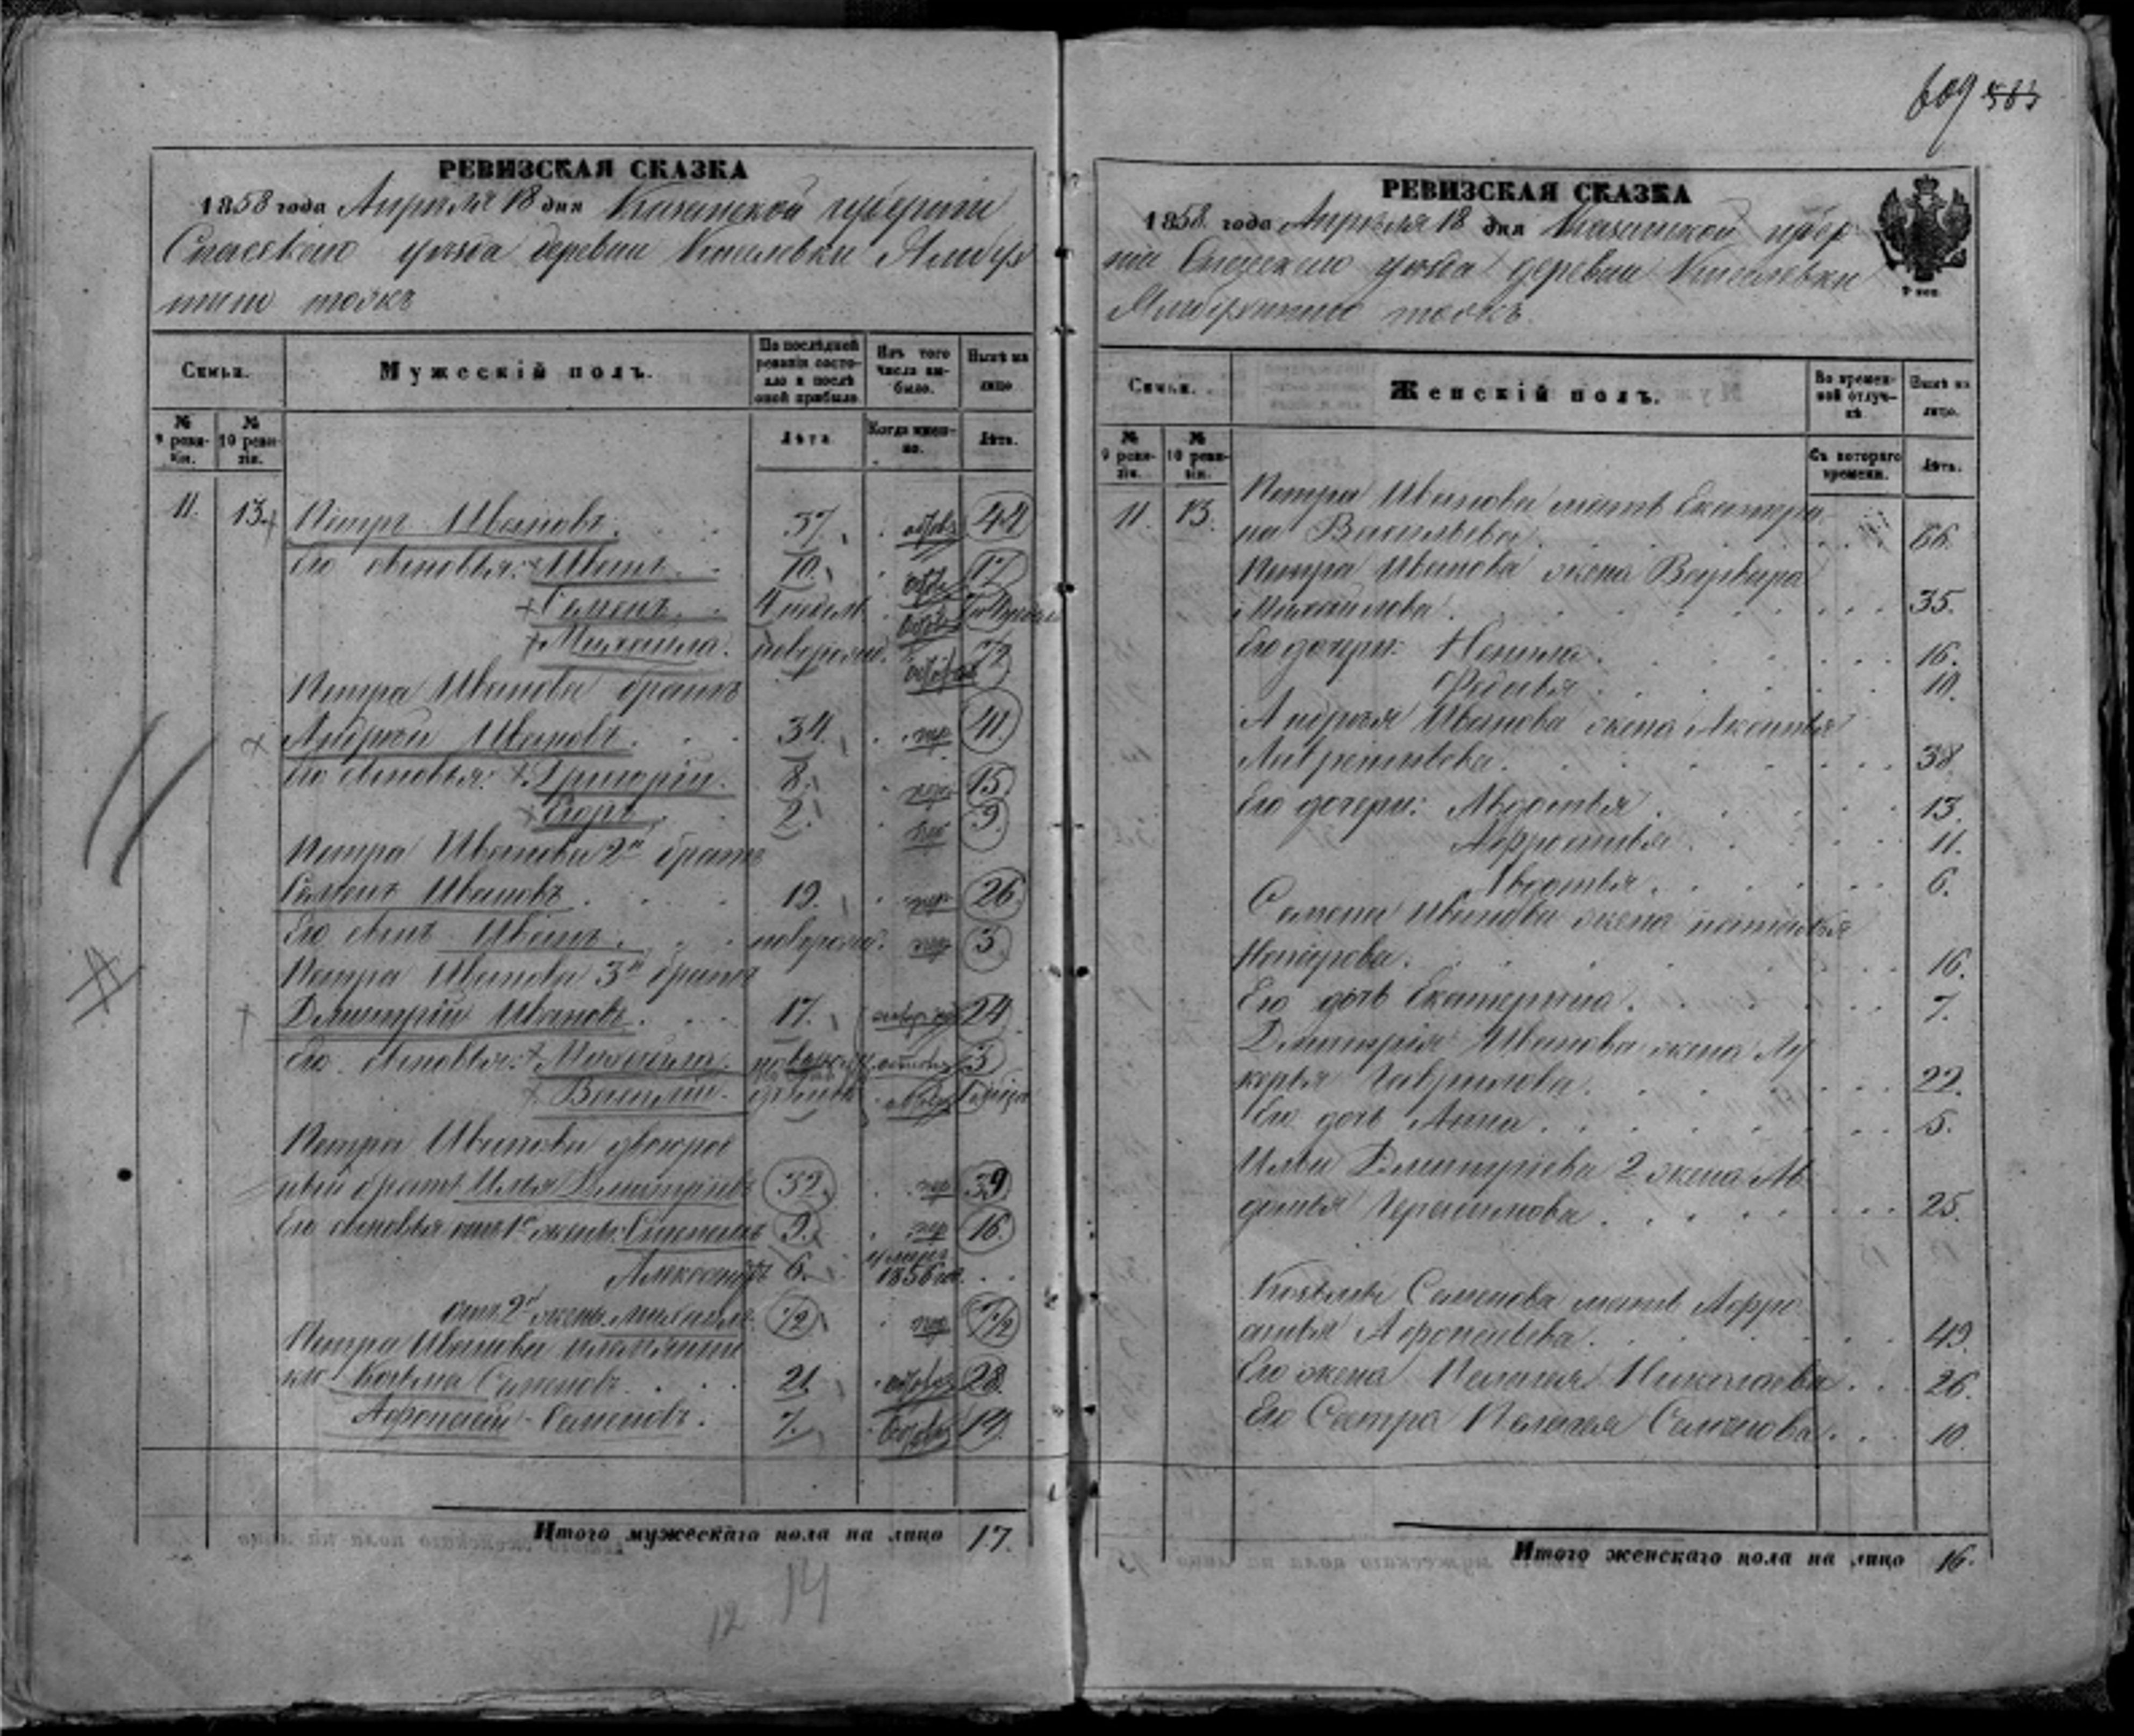 609 583
РЕВИЗСКАЯ СКАЗКА
1858 года Апреля 18 дня Казанской губернии
Спасскаго уезда деревни Киселевки
тожъ
Семьи.
Мужескій полъ.
По последней ревизіи состояло и после оной прибыло
Изъ того числа выбыло.
Ныне на лицо
№ 9 ревизіи.
№ 10 ревизіи.
Лета
Когда именно.
Лета.
11. 13. Петръ Ивановъ. 37. 42
Его сыновья: Иванъ 10. 17
Семенъ 4 недель
Михаила. новорожд. 1/2
Петра Иванова братъ
Андрей Ивановъ. 34. пер 41.
Его сыновья: Григорій. 8. пер 15
Егоръ 2. пер 9.
Петра Иванова 2й братъ
Семенъ Ивановъ 19. пер 26.
Его сынъ Иванъ. новорожд. пер 3.
Петра Иванова 3й братъ
Дмитрій Ивановъ. 17. 24
Его сыновья: Михайла. 3
Василий.
Петра Иванова двоюрод
ный братъ Илья Дмитріевъ 32. пер 39
Его сыновья отъ 1й жены: Степанъ 9. пер 16.
Александръ 6. умеръ 1856 го.
отъ 2й жены Михайла 1/2 пер 7 1/2
Петра Иванова племянни
ки Козьма Семеновъ 21. 28.
Афонасий Семеновъ. 7. 14.
Итого мужескаго пола на лицо 17.
12 14
РЕВИЗСКАЯ СКАЗКА
1858. года Апреля 18 дня Казанской губер
ніи Спасскаго уезда деревни Киселевки
тожъ.
Семьи.
Женскій полъ.
Во временной отлучке
Ныне на лицо.
№ 9 ревизіи.
№ 10 ревизіи.
Съ котораго времени.
Лета.
11. 13. Петра Иванова мать Екатери
на Васильева. 66.
Петра Иванова жена Варвара
Михайлова. 35.
Его дочери: Ненила. 16.
Федосья 10.
Андрея Иванова жена Аксинья
Лаврентьева. 38.
Его дочери: Авдотья 13.
Афросинья 11.
Авдотья. 6.
Семена Иванова жена
16.
Его дочь Екатерина. 7.
Дмитрія Иванова жена Лу
керья Гаврилова. 22.
Его дочь Анна. 5.
Ильи Дмитріева 2 жена Ав
дотья Герасимова 25.
Козьмы Семенова мать Афро
синья Афонасьева. 49.
Его жена Пелагея Николаева. 26.
Его Сестра Пелагея Семенова. 10.
Итого женскаго пола на лицо 16.